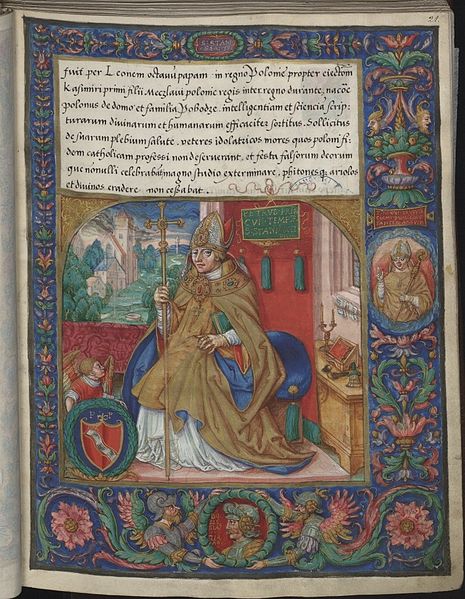 21.
S·STAN
fuit per Leonem octauū papam in regno Polonie propter eiectōm
Kasimiri primi filii Meczlaui polonie regis inter regno durante, nacōe
Polonus de domo et familia intelligentiam et sciencia scrip-
turarum diuinarum et humanarum efficaciter sortitus. Sollicitus
de suarum plebium salute, veteres idolatricos mores quos poloni fi-
dem catholicam professi non deseruerant, et festa falsorum deorum
que nonnulli celebrabāt magno studio exterminare, phitonesq₃ ariolos
et diuinos eradere non cessabat.
PETRVS PRI
CVI TEMPE
S·STANI